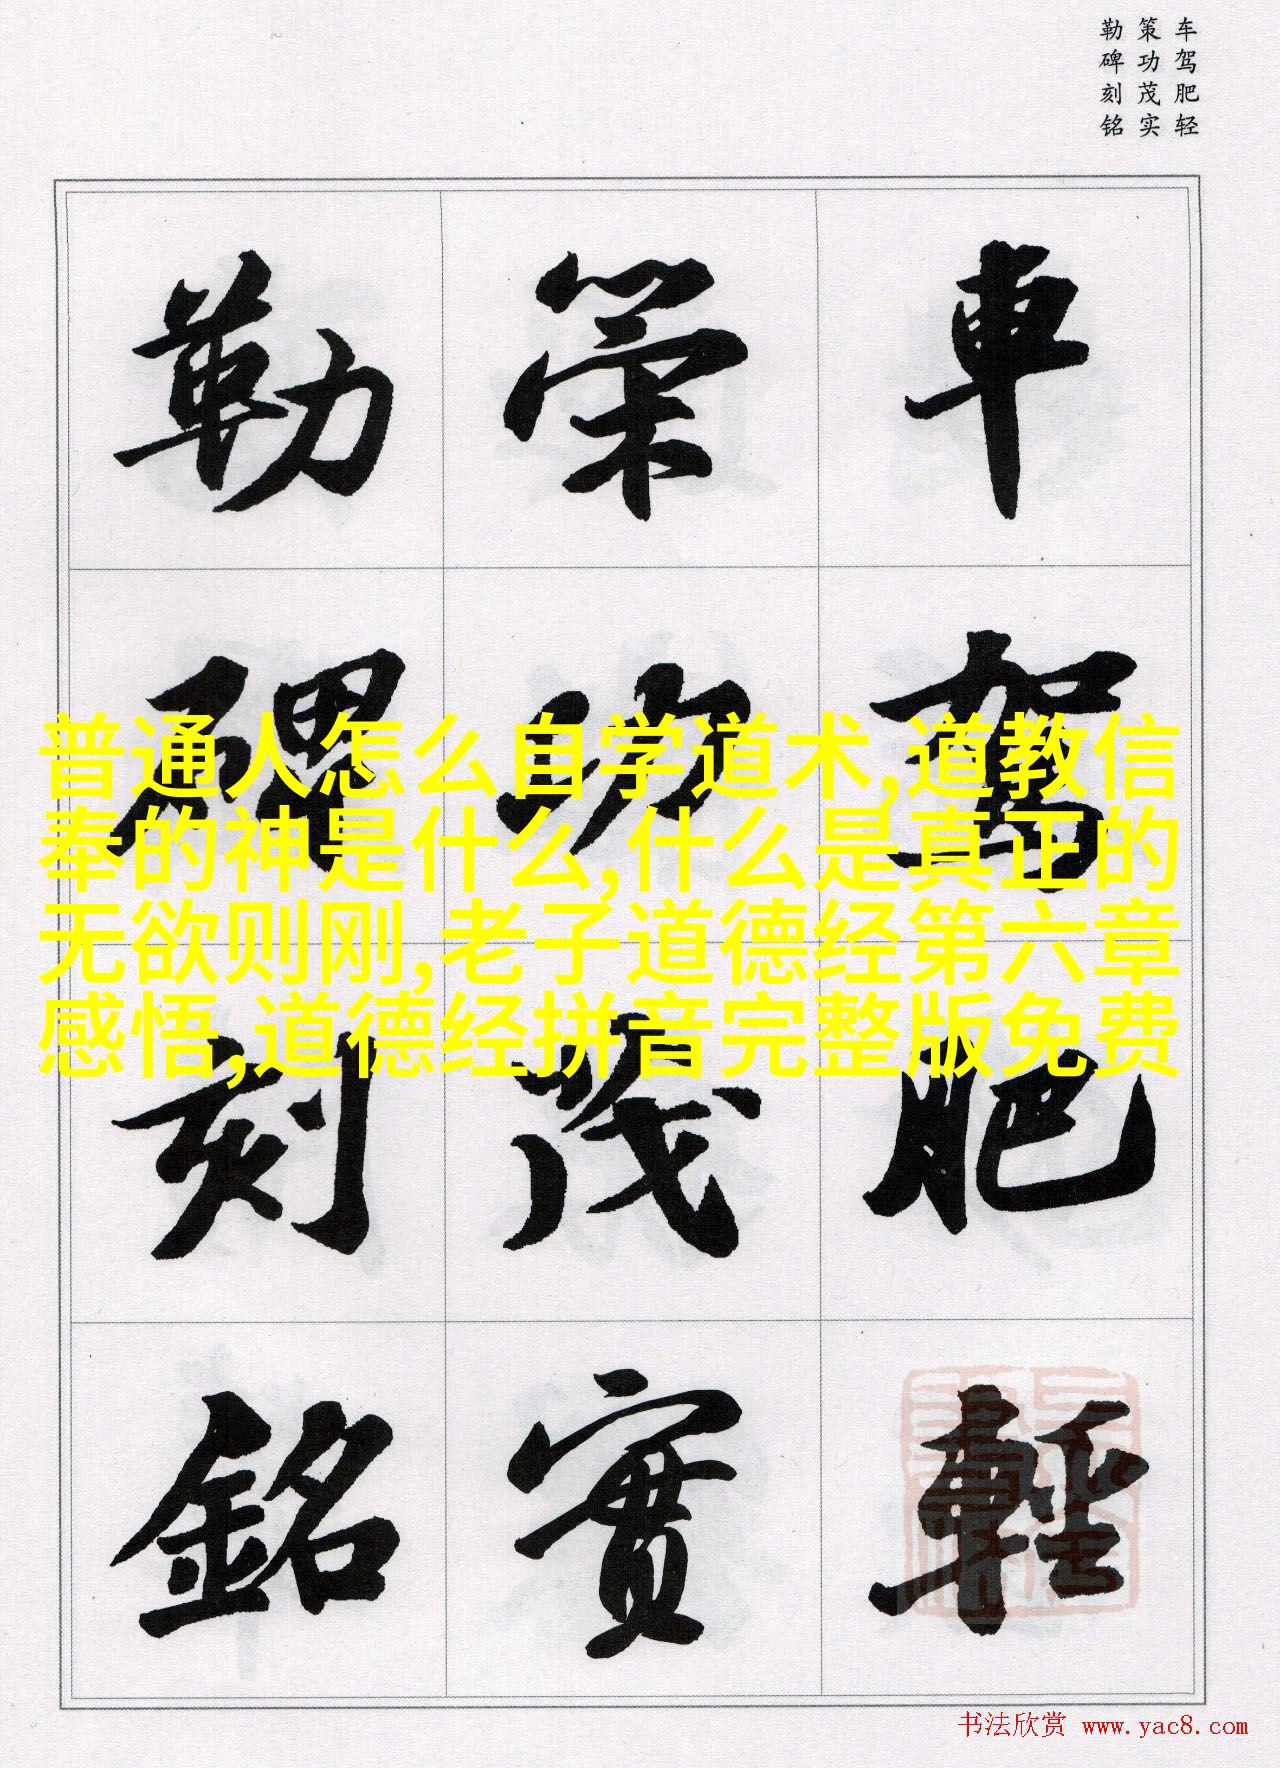 车驾肥轻
策功茂实
勒碑刻铭
車駕肥輕
策功茂實
勒碑刻銘
普通人怎么自学道术,道教信
奉的神是什么,什么是真正的
无欲则刚,老子道德经第六章
感悟,道德经拼音完整版免费
书法欣赏 www.yac8.com